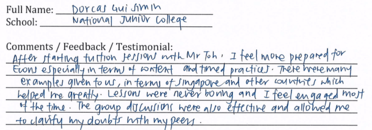 Full Name: Dorcas Gui Simin
School: National Junior College
Comments / Feedback / Testimonial:
After starting tuition sessions with Mr Toh, I feel more prepared for
Econs especially in terms of content and timed practices. There were many
examples given to us, in terms of Singapore and other countries which
helped me greatly. Lessons were never boring and I feel engaged most
of the time. The group discussions were also effective and allowed me
to clarify my doubts with my peers.